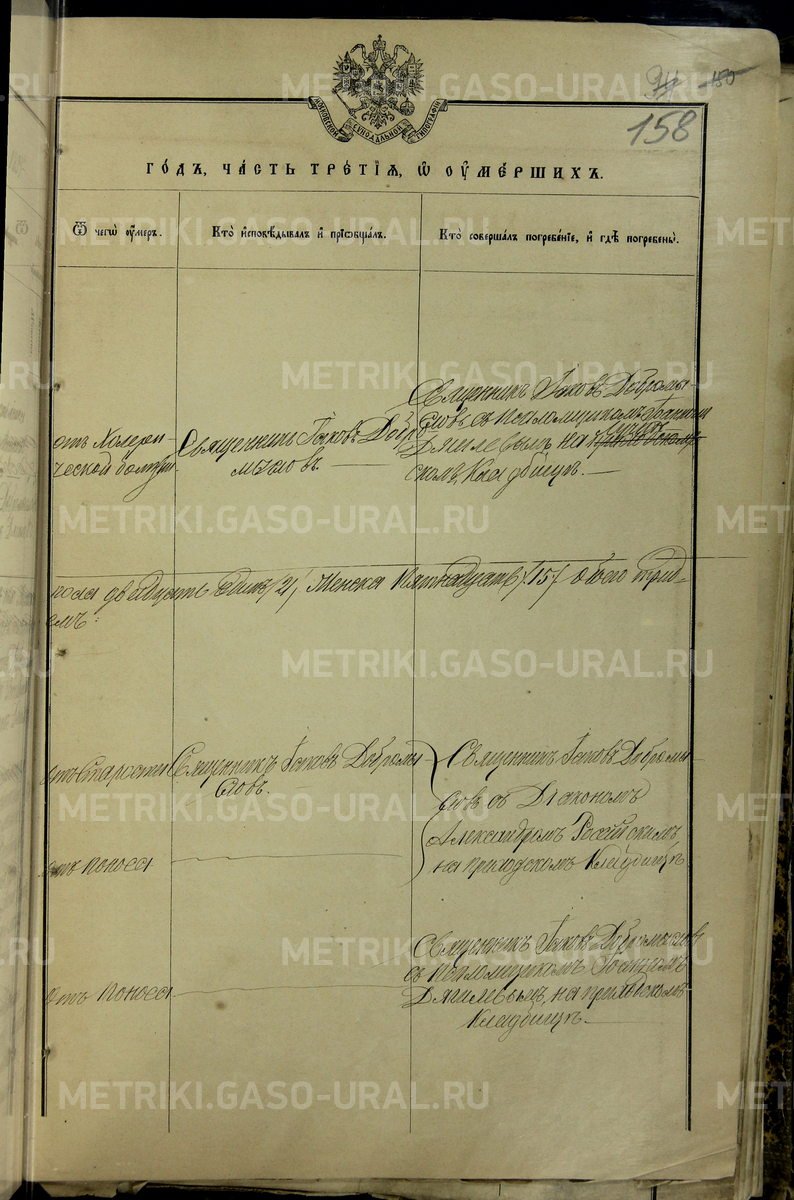 158
МОСКОВСКОЙ СѴНОДАЛЬНОЙ ТИПОГРАФІИ
ГО́ДЪ, ЧА́СТЬ ТРЕ́ТІЯ, Ѽ ОУ҆МЕ́РШИХЪ.
Ѿ чегѡ̀ оу҆́меръ.
Кто̀ и҆сповѣ́дывалъ и҆ прїѡбща́лъ.
Кто̀ соверша́лъ погребе́нїе, и҆ гдѣ̀ погребены̀.
отъ Холери-
ческой
Священникъ Іаковъ Добро
мысловъ.
Священникъ Іаковъ Добромы-
словъ съ Псаломщикомъ Іоанномъ
Дягилевымъ, на
скомъ Кладбищѣ.
пола двадцать одинъ /21/, женска пятнадцать /15/ обоего трид-
отъ Старости
Священникъ Іаковъ Добромы
словъ.
Священникъ Іаковъ Добромы
словъ съ Діакономъ
Александромъ
на приходскомъ Кладбищѣ
отъ поноса
отъ поноса
Священникъ Іаковъ Добромысловъ
съ Псаломщикомъ Іоанномъ
Дягилевымъ, на приходскомъ
Кладбищѣ.
METRIKI.GASO-URAL.RU